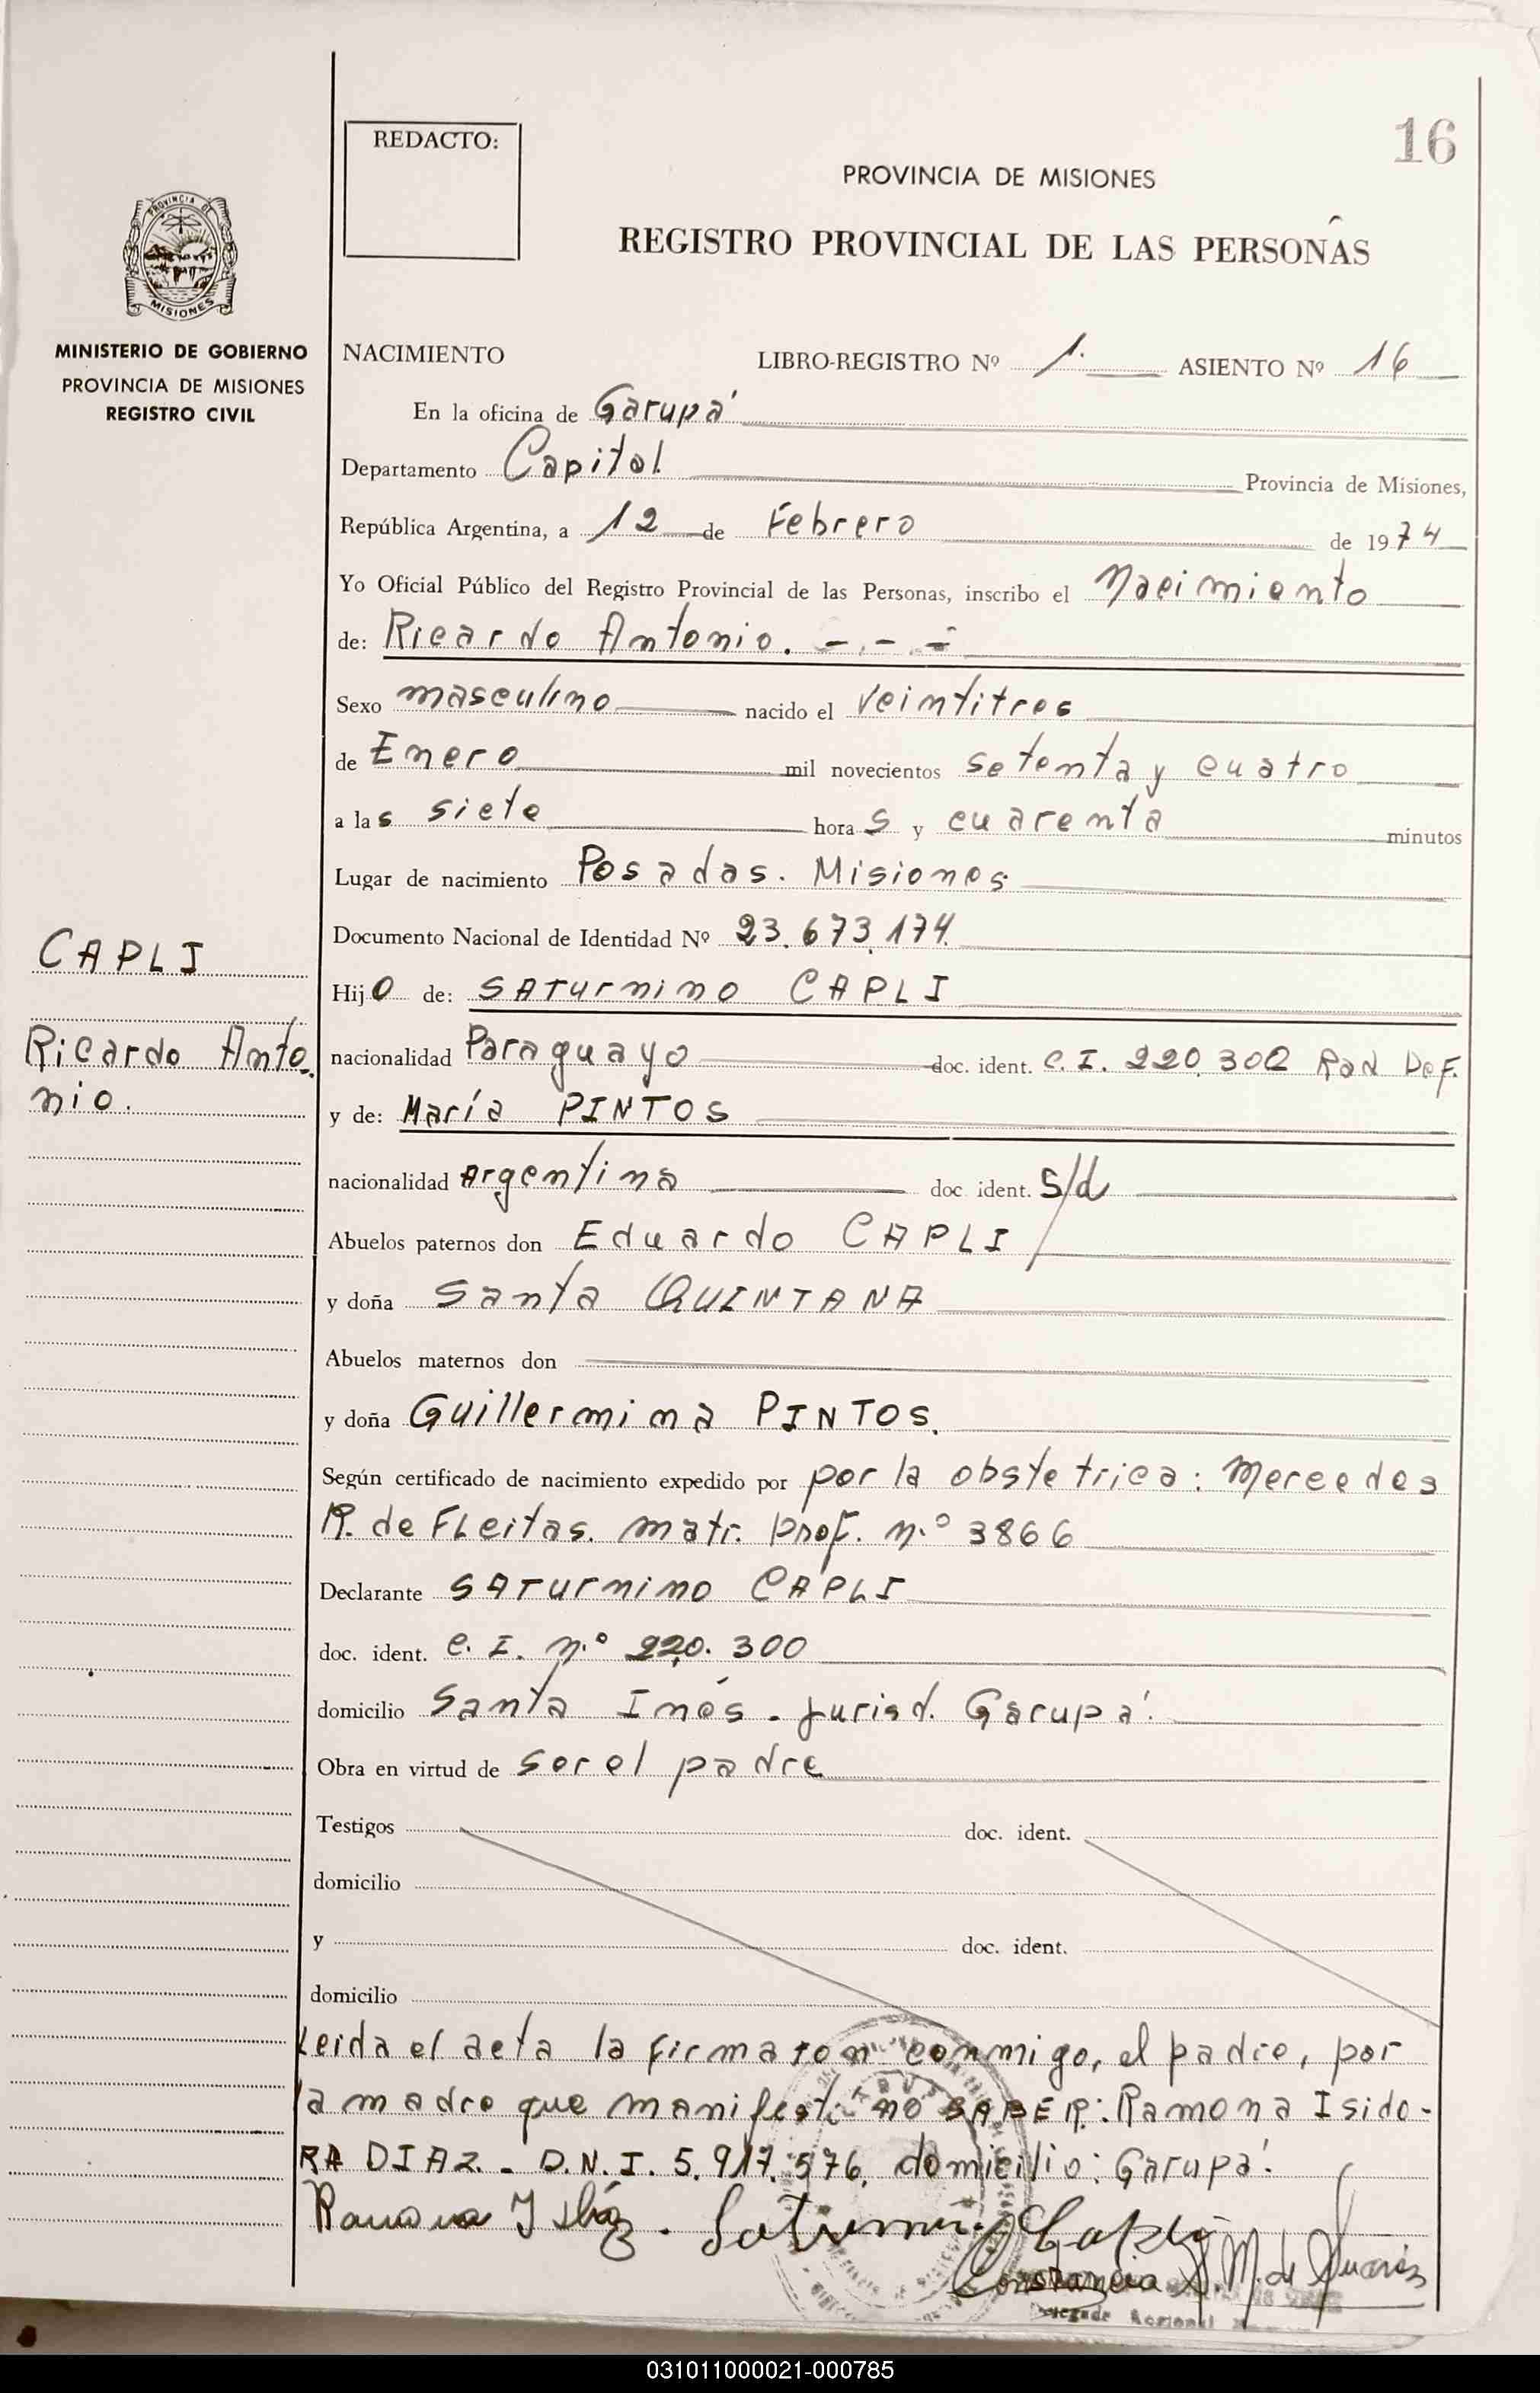 16
REDACTO:
PROVINCIA DE MISIONES
REGISTRO PROVINCIAL DE LAS PERSONAS
PROVINCIA DE
MISIONES
MINISTERIO DE GOBIERNO
PROVINCIA DE MISIONES
REGISTRO CIVIL
NACIMIENTO LIBRO-REGISTRO Nº 1. ASIENTO Nº 16
En la oficina de Garupá
Departamento Capital Provincia de Misiones,
República Argentina, a 12 de Febrero de 1974
Yo Oficial Público del Registro Provincial de las Personas, inscribo el Nacimiento
de: Ricardo Antonio. - . - . -
Sexo masculino nacido el veintitres
de Enero mil novecientos setenta y cuatro
a las siete horas y cuarenta minutos
Lugar de nacimiento Posadas. Misiones
Documento Nacional de Identidad Nº 23.673.174.
CAPLI
Ricardo Anto
nio.
Hijo de: SATurnino CAPLI
nacionalidad Paraguayo doc. ident. C. I. 220.300 Rad Def.
y de: María PINTOS
nacionalidad Argentina doc. ident. s/d
Abuelos paternos don Eduardo CAPLI
y doña Santa QUINTANA
Abuelos maternos don
y doña Guillermina PINTOS.
Según certificado de nacimiento expedido por por la obstetrica: Mercedes
R. de FLeitas. matr. prof. n.º 3866
Declarante SATurnino CAPLI
doc. ident. C. I. n.º 220.300
domicilio Santa Inés - jurisd. Garupá.
Obra en virtud de ser el padre
Testigos doc. ident.
domicilio
y doc. ident.
domicilio
Leida el acta la firmaron conmigo, el padre, por
la madre que manifestó no SABER: Ramona Isido-
RA DIAZ - D.N.I. 5.917.576. domicilio: Garupá.
Ramona I Díaz - Saturnino Capli
Constancia S. M. de Suarez
031011000021-000785